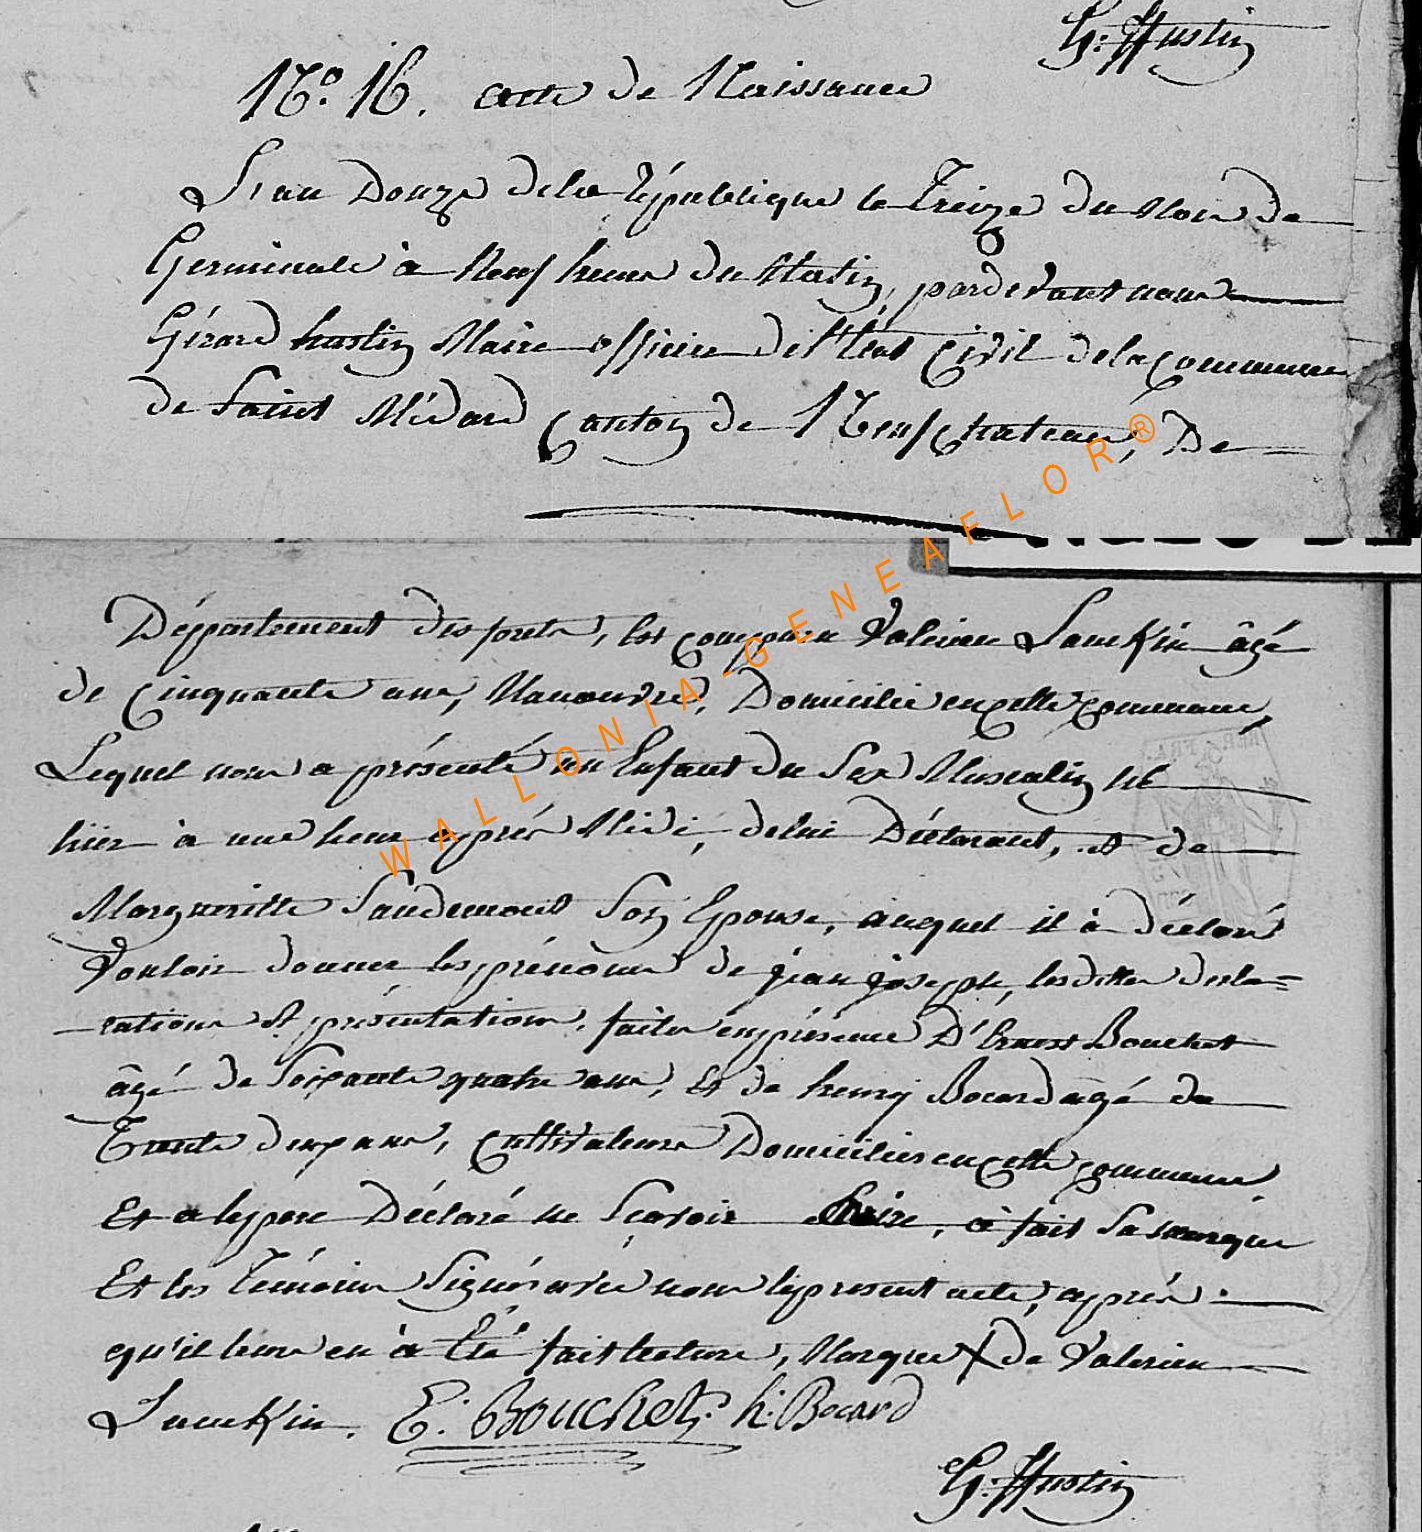 G: Hustin
N.o 16. acte de Naissance
L'an Douze de la république le treize du Mois de
Germinale à Neuf heures du Matin, pardevant nous
Gérard hustin Maire officier de l'Etat Civil de la commune
de Saint Médard Canton de Neufchateau, De
Département des forets, est comparu Valerien Lamkin âgé
de cinquante ans, Manouvre, Domicilié en cette commune,
Lequel nous a présenté un Enfant du Sex Masculin né
hier à une heure après Midi, de lui Déclarant, et de
Margueritte Saudemont Son Epouse, auquel il à déclaré
Vouloir donner les prénoms de jean joseph, lesdittes decla=
rations et présentations, faites en présence D'Ernest Bouchet
âgé de Soixante quatre ans, et de henry Bocard agé de
Trente deux ans, Cultivateurs Domiciliés en cette commune,
Et a le pere Déclaré ne Sçavoir Ecrire, à fait Sa marque
Et les Témoins Signés avec nous le present acte, après
qu'il leur en à Eté fait lecture, Marque X de Valerien
Lamkin. E: Bouchet. h: Bocard
G: Hustin
WALLONIA-GENEAFLOR®